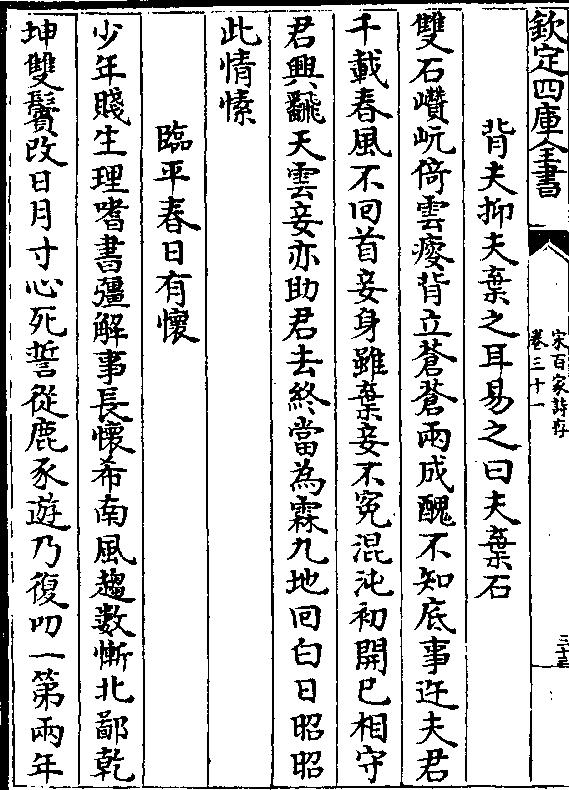 欽定四庫全書
宋百家詩存
卷三十一
背夫抑夫棄之耳易之曰夫棄石
雙石巑岏倚雲瘦背立蒼蒼兩成醜不知底事迕夫君
千載春風不回首妾身雖棄妾不冤混沌初開已相守
君興飜天雲妾亦助君去終當為霖九地回白日昭昭
此情愫
臨平春日有懷
少年賤生理嗜書彊解事長懷希南風趨數慚北鄙乾
坤雙鬢改日月寸心死誓從鹿豕遊乃復叨一第兩年